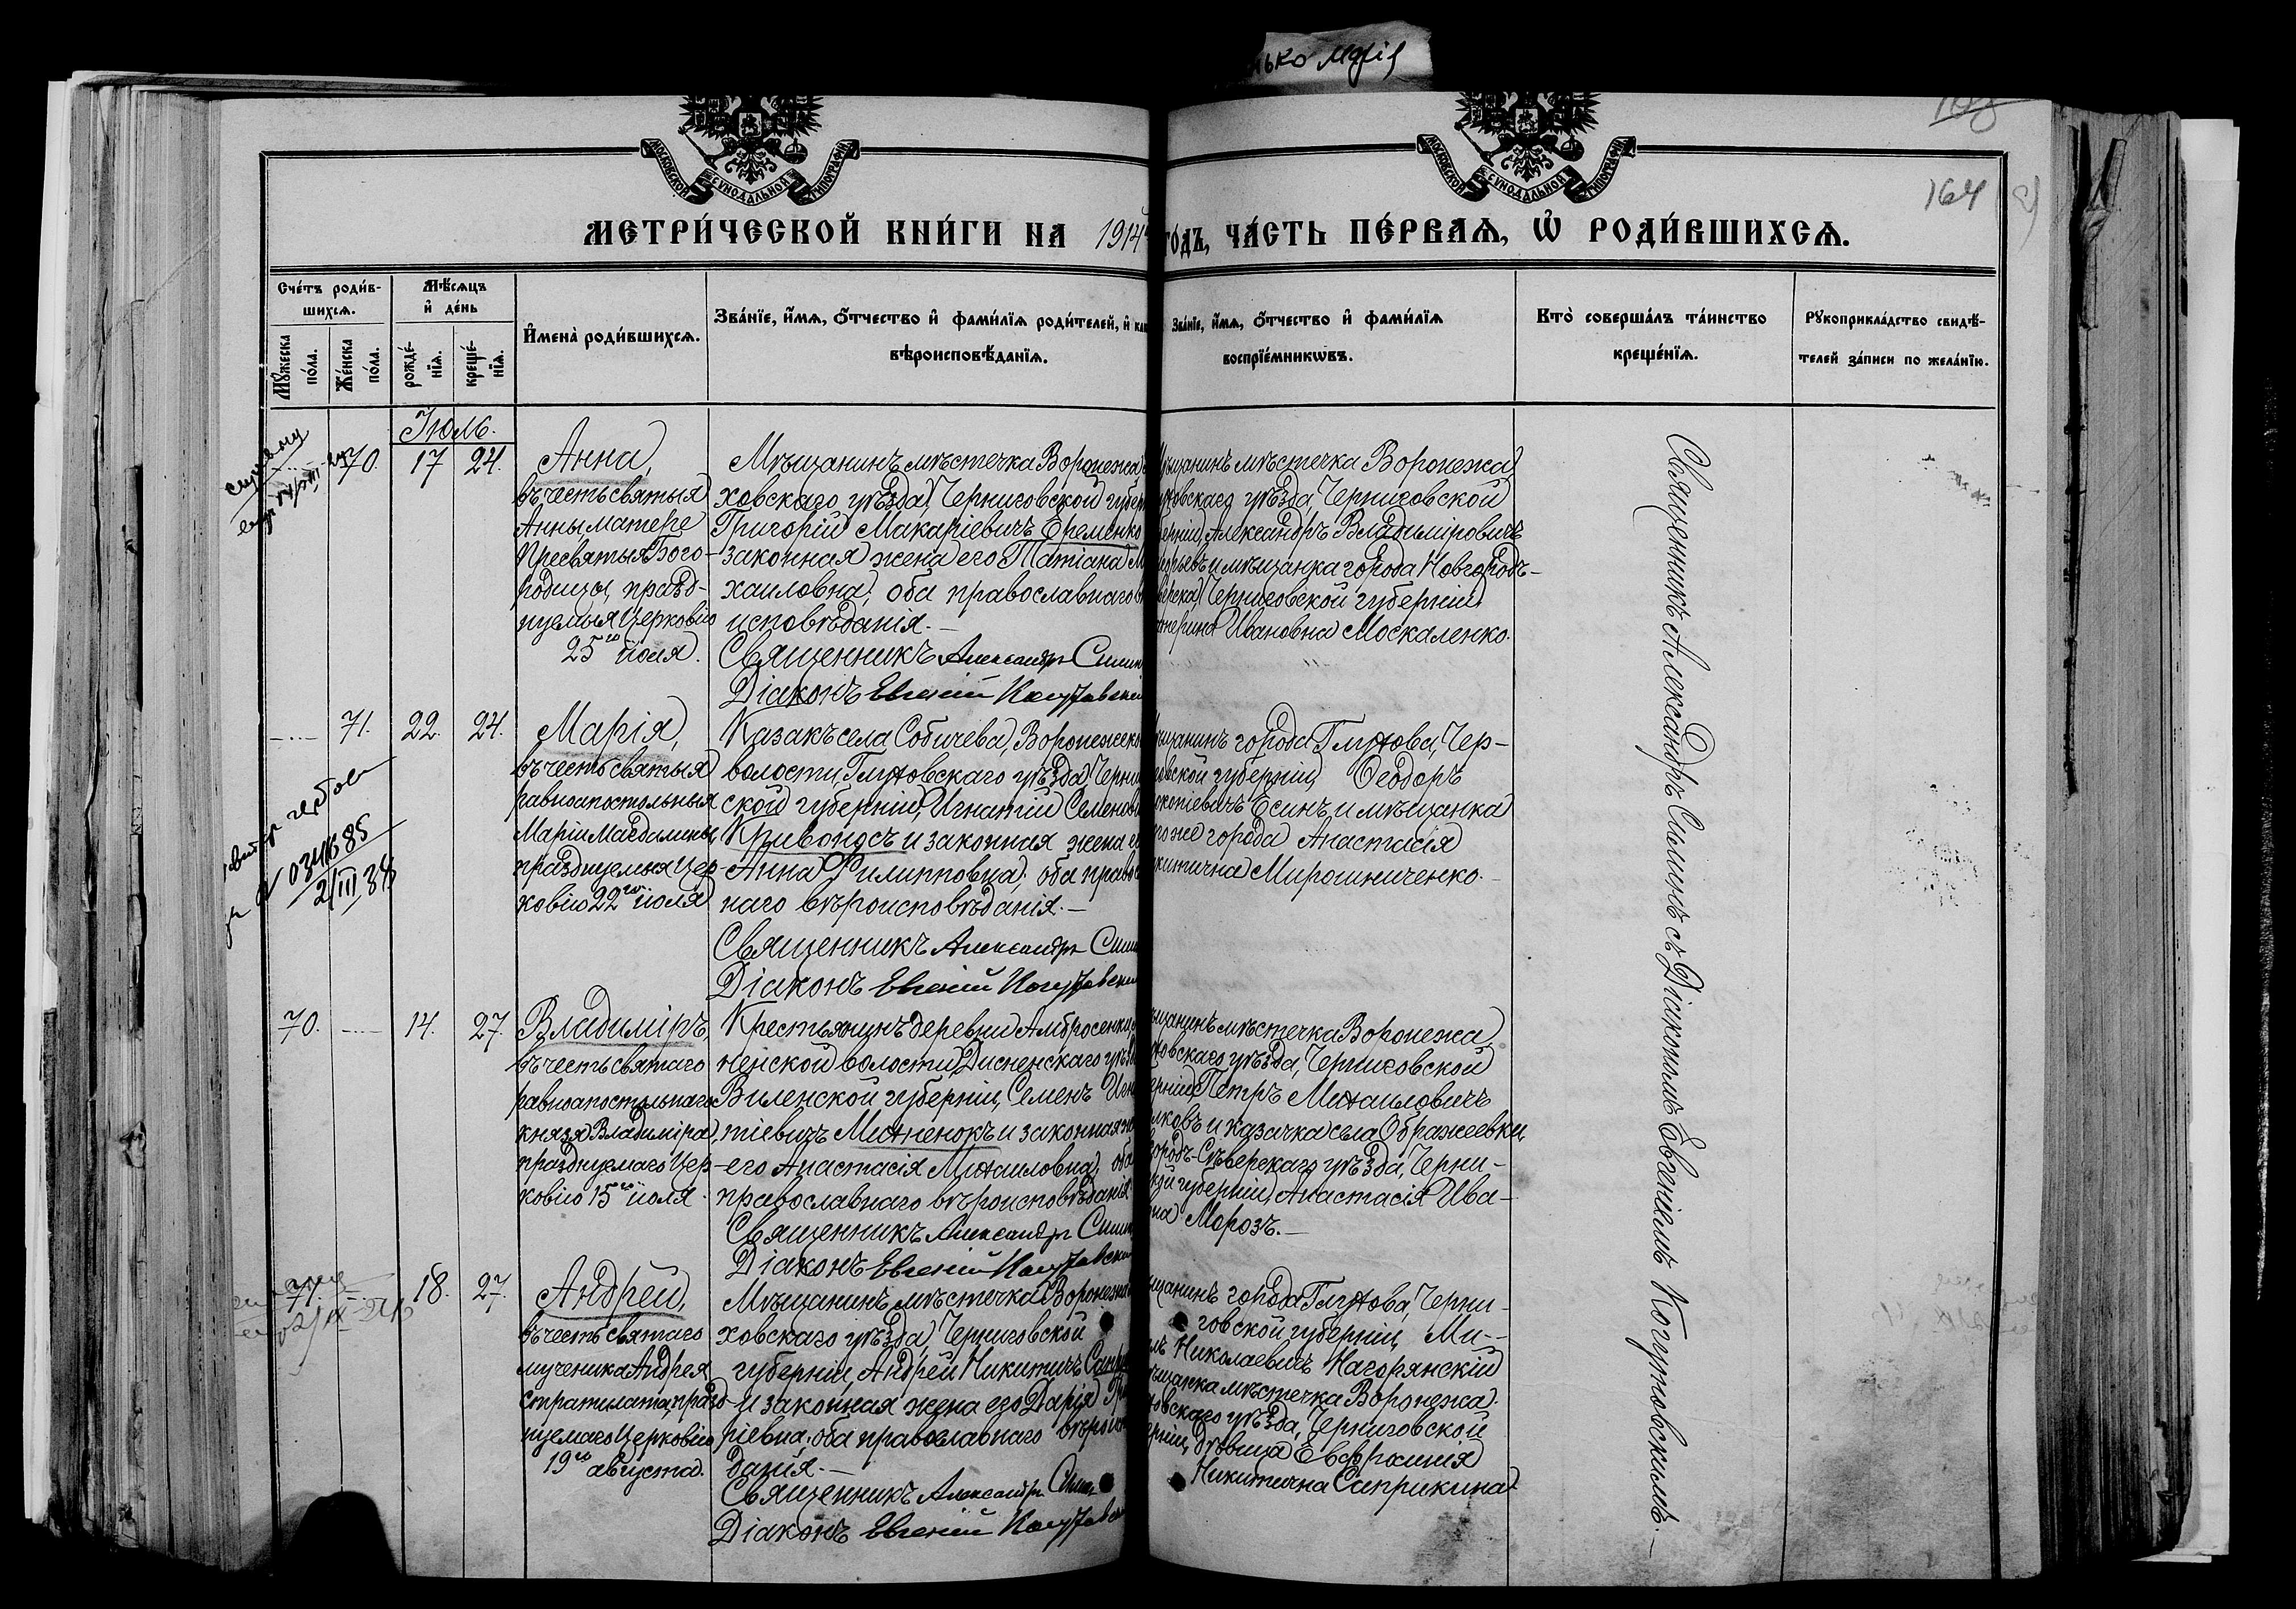 лько Марія
МОСКОВСКОЙ СѴНОДАЛЬНОЙ ТИПОГРАФІИ
МОСКОВСКОЙ СѴНОДАЛЬНОЙ ТИПОГРАФІИ
164
МЕТРИ́ЧЕСКОЙ КНИ́ГИ НА 1914 го́дъ, ЧА́СТЬ ПЕ́РВАѦ, Ѽ РОДИ́ВШИХСѦ.
Сче́тъ роди́в-
шихсѧ.
Мꙋ́жеска по́ла.
Же́нска по́ла.
Мѣ́сѧцъ
и҆ де́нь
рожде́-
нїѧ.
креще́-
нїѧ.
И҆мена̀ роди́вшихсѧ.
Зва́нїе, и҆́мѧ, ѻ҆́тчество и҆ фами́лїѧ роди́телей, и҆
вѣроисповѣ́данїѧ.
Зва́нїе, и҆́мѧ, ѻ҆́тчество и҆ фами́лїѧ
воспрїе́мникѡвъ.
Кто̀ соверша́лъ та́инство
креще́нїѧ.
Рꙋкоприкла́дство свидѣ́-
телей за́писи по жела́нїю.
Іюль.
70. 17 24.
Анна,
въ честь святыя
Анны, матере
Пресвятыя Бого-
родицы, празд-
нуемыя Церковію
25го іюля.
Мѣщанинъ мѣстечка Воронежа,
ховскаго уѣзда, Черниговской губер
Григорій Макаріевичъ Еременко
законная жена его Татіана Ми
хаиловна; оба православнаго в
исповѣданія.—
Священникъ Александръ Симин
Діаконъ Евгеній Когутовскій
щанинъ мѣстечка Воронежа,
ховскаго уѣзда, Черниговской
берніи, Александръ Владиміровичъ
орьевъ и мѣщанка города Новгородъ-
верска, Черниговской губерніи,
терина Ивановна Москаленко.
Священникъ Александръ Симинъ съ Діакономъ Евгеніемъ Когутовскимъ.—
71. 22. 24.
031685
2/III 38
Марія,
въ честь святыя
равноапостольныя
Маріи Магдалины,
празднуемыя Цер-
ковію 22го іюля
Казакъ села Собичева, Воронежско
волости, Глуховскаго уѣзда, Черни
ской губерніи, Игнатій Семенови
Кривоносъ и законная жена е
Анна Филипповна; оба правос
наго вѣроисповѣданія.—
Священникъ Александръ Сими
Діаконъ Евгеній Когутовскі
щанинъ города Глухова, Чер-
говской губерніи, Ѳеодоръ
окопіевичъ Есинъ и мѣщанка
го же города Анастасія
китична Мирошниченко.—
70. 14. 27.
Владиміръ,
въ честь святаго
равноапостольнаго
князя Владиміра,
празднуемаго Цер-
ковію 15го іюля.
Крестьянинъ деревни Амбросенки,
нейской волости, Дисненскаго уѣз
Виленской губерніи, Семенъ Игн
тіевичъ Михненокъ и законная же
его Анастасія Михаиловна; оба
православнаго вѣроисповѣданія.
Священникъ Александръ Сими
Діаконъ Евгеній Когутовскі
щанинъ мѣстечка Воронежа,
ховскаго уѣзда, Черниговской
берніи, Петръ Михаиловичъ
лковъ и казачка села Ображеевки,
городъ-Сѣверскаго уѣзда, Черни-
кой губерніи, Анастасія Ива-
на Морозъ.—
71. 18. 27.
Андрей,
въ честь святаго
мученика Андрея
стратилата, празд-
нуемаго Церковію
19го августа.
Мѣщанинъ мѣстечка Воронежа
ховскаго уѣзда, Черниговской
губерніи, Андрей Никитичъ Сапр
и законная жена его Дарія Гри
ріевна; оба православнаго вѣроис
данія.—
Священникъ Александръ Симин
Діаконъ Евгеній Когутовск
щанинъ города Глухова, Черни-
говской губерніи, Ми-
лъ Николаевичъ Нагорянскій
ѣщанка мѣстечка Воронежа,
ховскаго уѣзда, Черниговской
берніи, дѣвица Евфросинія
Никитична Саприкина